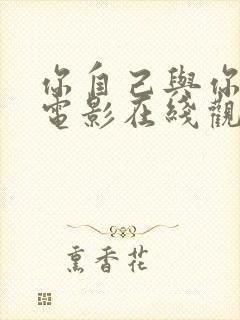 你自己與你
電影在綫觀
熏香花